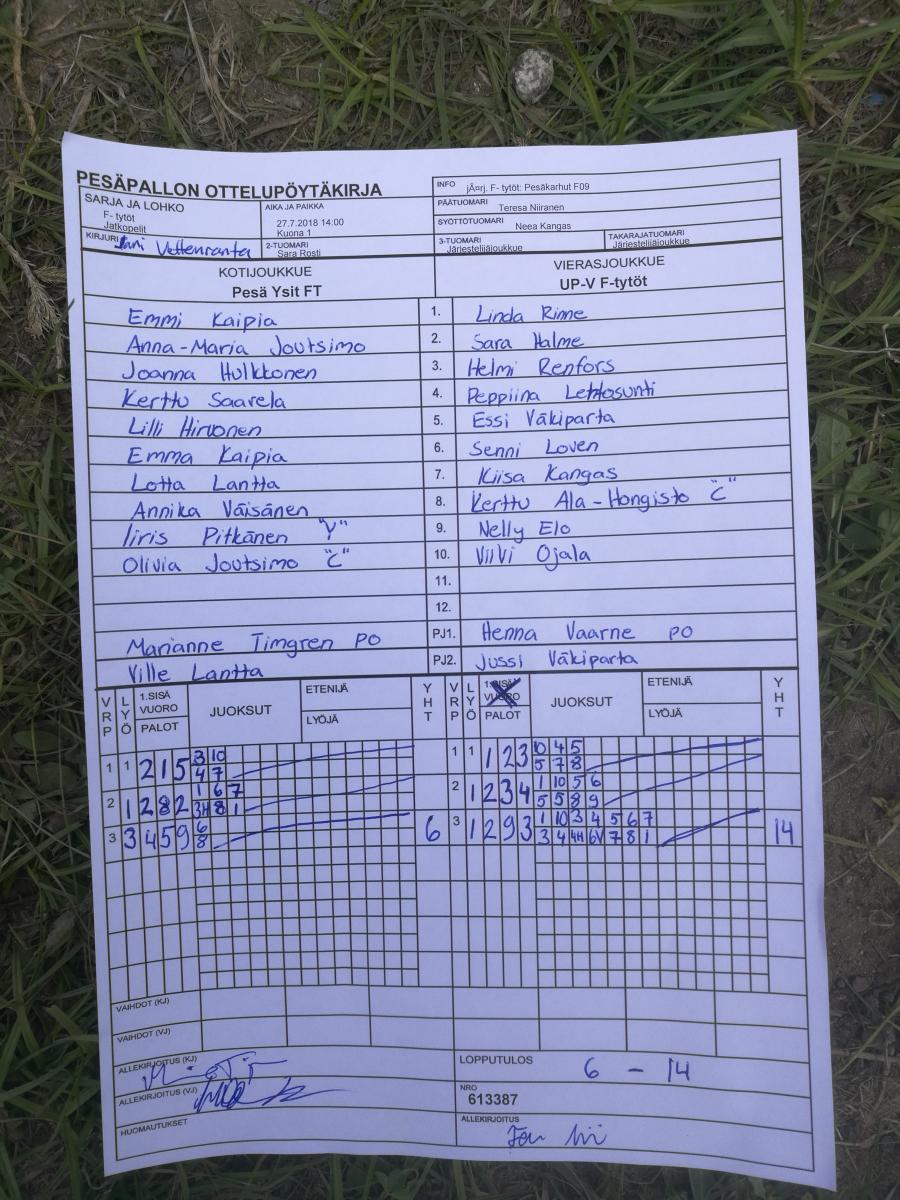 PESÄPALLON OTTELUPÖYTÄKIRJA
INFO jÃ¤rj. F- tytöt: Pesäkarhut F09
SARJA JA LOHKO
F- tytöt
Jatkopelit
AIKA JA PAIKKA
27.7.2018 14:00
Kuona 1
PÄÄTUOMARI Teresa Niiranen
SYÖTTÖTUOMARI Neea Kangas
KIRJURI Vettenranta
2-TUOMARI
Sara Rosti
3-TUOMARI
Järjestelijäjoukkue
TAKARAJATUOMARI
Järjestelijäjoukkue
KOTIJOUKKUE VIERASJOUKKUE
Pesä Ysit FT UP-V F-tytöt
Emmi Kaipia 1. Linda Rinne
Anna-Maria Joutsimo 2. Sara Halme
Joanna Hulkkonen 3. Helmi Renfors
Kerttu Saarela 4. Peppiina Lehtosunti
Lilli Hirvonen 5. Essi Väkiparta
Emma Kaipia 6. Senni Loven
Lotta Lantta 7. Kiisa Kangas
Annika Väisänen 8. Kerttu Ala-Hongisto "C"
Iiris Pitkänen "V" 9. Nelly Elo
Olivia Joutsimo "C" 10. Vilvi Ojala
11.
12.
Marianne Timgren PO PJ1. Henna Vaarne PO
Ville Lantta PJ2. Jussi Väkiparta
VRP LYÖ 1.SISÄ VUORO PALOT JUOKSUT ETENIJÄ LYÖJÄ YHT VRP LYÖ 1.SISÄ VUORO PALOT JUOKSUT ETENIJÄ LYÖJÄ YHT
1 1 2 1 5 3 10 1 1 1 2 3 10 4 5
4 7 5 7 8
2 1 2 8 2 1 6 7 2 1 2 3 4 1 10 5 6
3H 8 1 5 5 8 9
3 3 4 5 9 6 6 3 1 2 9 3 1 10 3 4 5 6 7 14
8 3 4 4H 6V 7 8 1
VAIHDOT (KJ)
VAIHDOT (VJ)
ALLEKIRJOITUS (KJ)
LOPPUTULOS 6 - 14
ALLEKIRJOITUS (VJ)
NRO
613387
HUOMAUTUKSET
ALLEKIRJOITUS